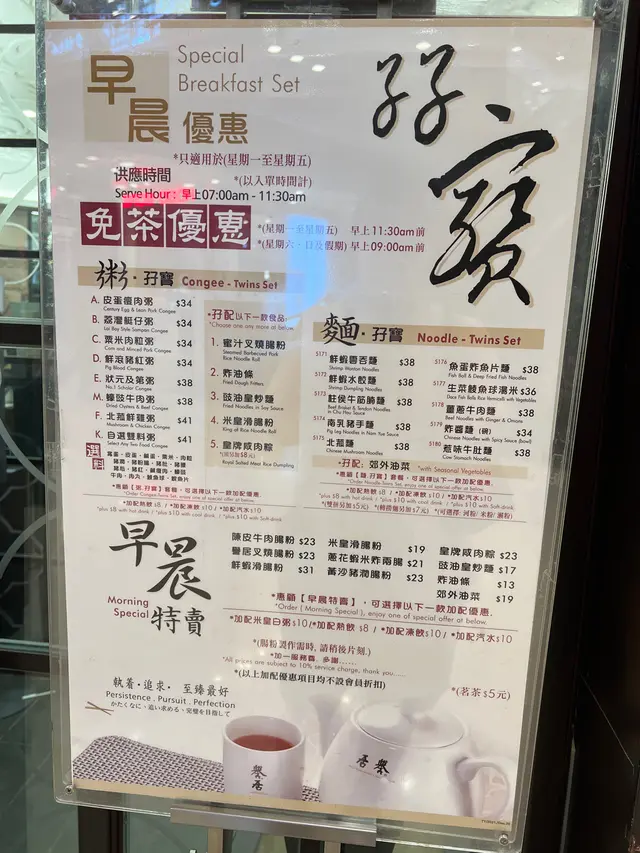 早晨
優惠
Special
Breakfast Set
孖寶
*只適用於(星期一至星期五)
供應時間
*(以入單時間計)
Serve Hour : 早上07:00am - 11:30am
免茶優惠
*(星期一至星期五) 早上11:30am前
*(星期六、日及假期) 早上09:00am前
粥·孖寶 Congee - Twins Set
A. 皮蛋瘦肉粥 $34
Century Egg & Lean Pork Congee
B. 荔灣艇仔粥 $34
Lai Bay Style Sampan Congee
C. 粟米肉粒粥 $34
Corn and Minced Pork Congee
D. 鮮滾豬紅粥 $34
Pig Blood Congee
E. 狀元及第粥 $38
No.1 Scholar Congee
M. 蠔豉牛肉粥 $38
Dried Oysters & Beef Congee
F. 北菰鮮雞粥 $41
Mushroom & Chicken Congee
K. 自選雙料粥 $41
Select Any Two Food Congee
選料
*孖配以下一款食品:
*Choose one any more at below
1. 蜜汁叉燒腸粉
Steamed Barbecued Pork
Rice Noodle Roll
2. 炸油條
Fried Dough Fritters
3. 豉油皇炒麵
Fried Noodles in Soy Sauce
4. 米皇滑腸粉
King of Rice Noodle Roll
5. 皇牌咸肉粽
*(須另加$8元)
Royal Salted Meat Rice Dumpling
*加配熱飲$8 / *加配凍飲$10 / *加配汽水$10
*plus $8 with hot drink / *plus $10 with cool drink / *plus $10 with Soft-drink
麵·孖寶 Noodle - Twins Set
S171 鮮蝦雲吞麵 $38
Shrimp Wonton Noodles
S172 鮮蝦水餃麵 $38
Shrimp Dumpling Noodles
S173 柱侯牛筋腩麵 $38
Beef Brisket & Tendon Noodles
in Chu Hou Sauce
S174 南乳豬手麵 $38
Pig Leg Noodles in Nam Yue Sauce
S175 北菰麵 $38
Chinese Mushroom Noodles
S176 魚蛋炸魚片麵 $38
Fish Ball & Deep Fried Fish Noodles
S177 生菜鯪魚球湯米 $36
Dace Fish Balls Rice Vermicelli with Vegetables
S178 薑蔥牛肉麵 $38
Beef Noodles with Ginger & Onions
S179 炸醬麵 (碗) $34
Chinese Noodles with Spicy Sauce (bowl)
S180 惹味牛肚麵 $38
Cow Stomach Noodles
*孖配: 郊外油菜 *with Seasonal Vegetables
*加配熱飲$8 / *加配凍飲$10 / *加配汽水$10
*plus $8 with hot drink / *plus $10 with cool drink / *plus $10 with Soft-drink
*(可選擇: 河粉/ 米粉/ 瀨粉)
早晨
特賣
Morning
Special
陳皮牛肉腸粉 $23
譽居叉燒腸粉 $23
鮮蝦滑腸粉 $31
米皇滑腸粉 $19
蔥花蝦米炸兩腸 $21
黃沙豬潤腸粉 $23
皇牌咸肉粽 $23
豉油皇炒麵 $17
炸油條 $13
郊外油菜 $19
*惠顧【早晨特賣】, 可選擇以下一款加配優惠.
*Order ( Morning Special ), enjoy one of special offer at below.
*加配米皇白粥 $10/*加配熱飲 $8 / *加配凍飲$10 / *加配汽水$10
*(腸粉製作需時, 請稍後片刻.)
*加一服務費. 多謝.....
*All prices are subject to 10% service charge, thank you....
*(以上加配優惠項目均不設會員折扣)
*(茗茶 $5元)
執着·追求· 至臻最好
Persistence . Pursuit . Perfection
かたくなに、追い求める、完璧を目指して
譽居
譽居